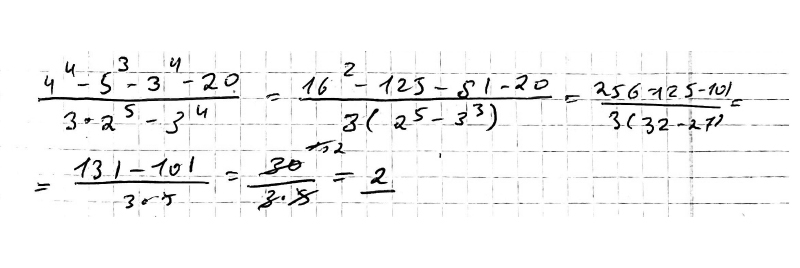 (4⁴ - 5³ - 3⁴ - 20)/(3·2⁵ - 3⁴) = (16² - 125 - 81 - 20)/(3(2⁵ - 3³)) = (256 - 125 - 101)/(3(32 - 27)) =
= (131 - 101)/(3·5) = 30/(3·5) = 2